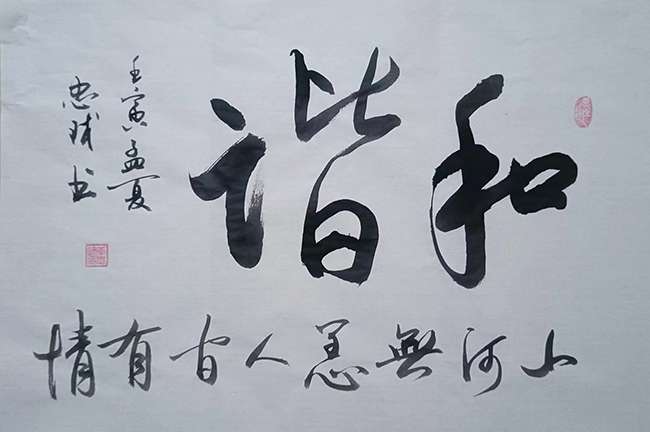 和谐
山河無恙人间有情
壬寅孟夏
忠球书